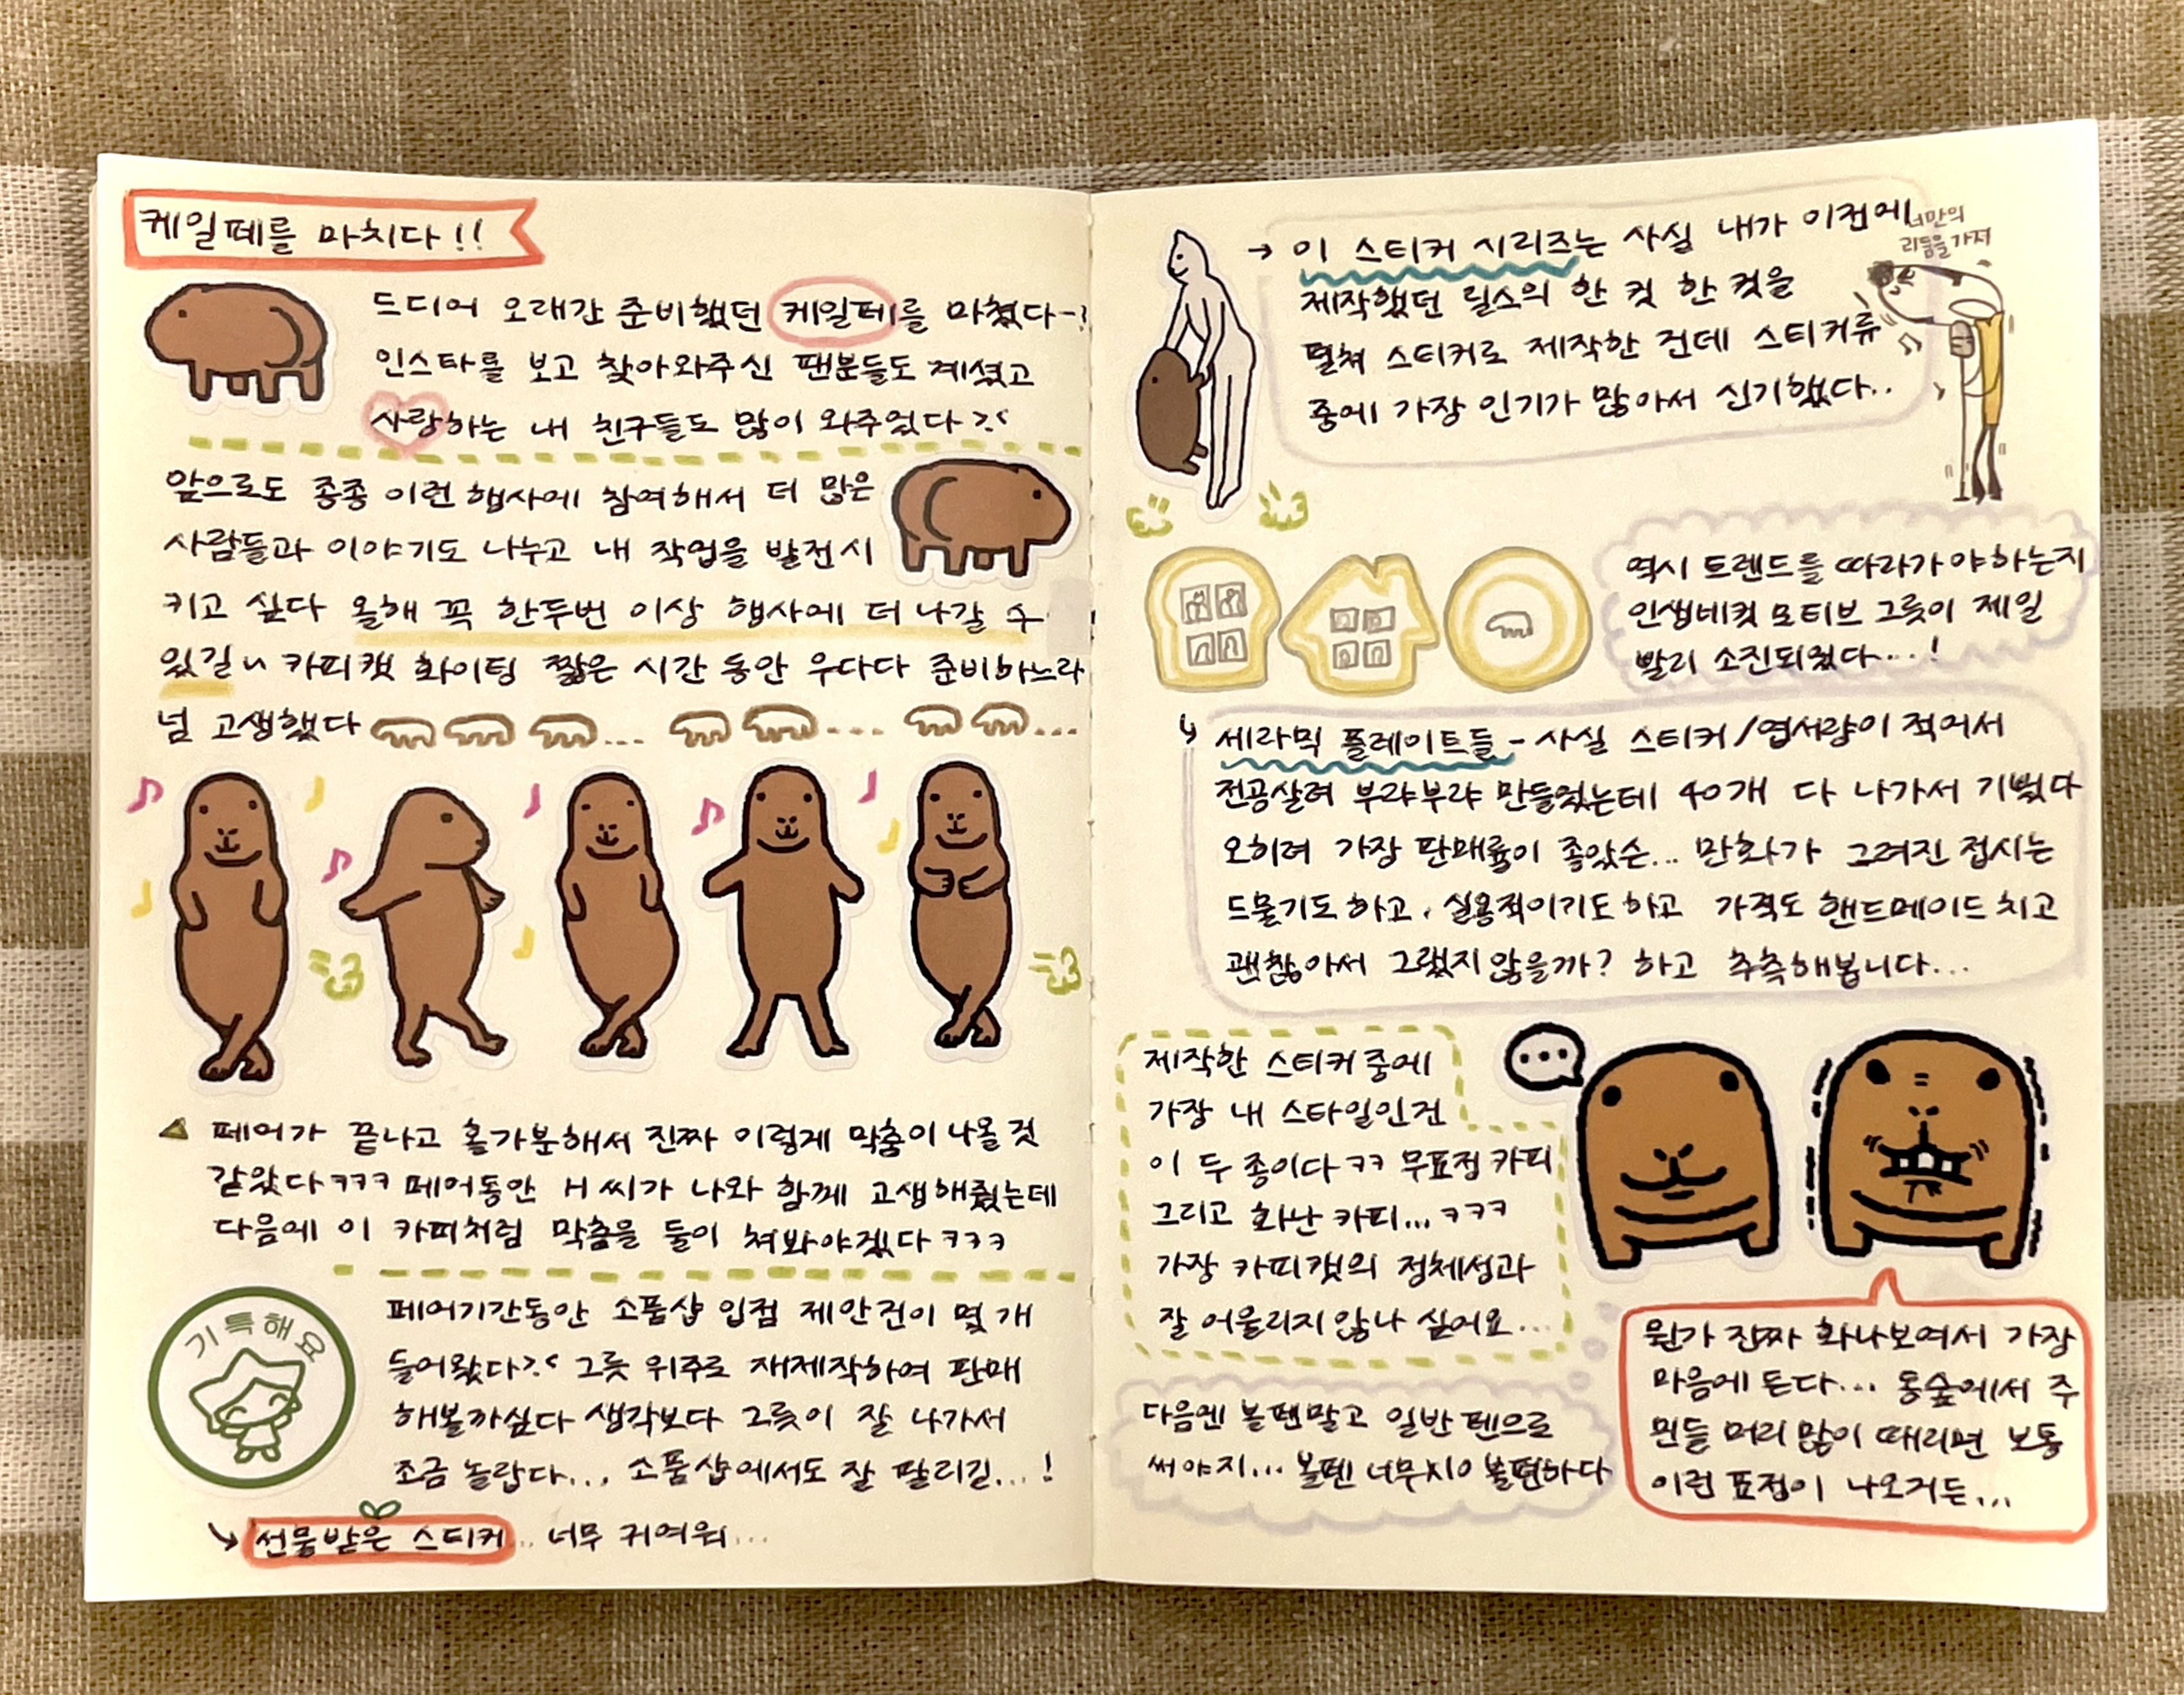 케일페를 마치다!!
드디어 오래간 준비했던 케일페를 마쳤다-!
인스타를 보고 찾아와주신 팬분들도 계셨고
사랑하는 내 친구들도 많이 와주었다
앞으로도 종종 이런 행사에 참여해서 더 많은
사람들과 이야기도 나누고 내 작업을 발전시
키고 싶다 올해 꼭 한두번 이상 행사에 더 나갈 수
있길 카피캣 화이팅 짧은 시간 동안 우다다 준비하느라
넘 고생했다
페어가 끝나고 홀가분해서 진짜 이렇게 막춤이 나올 것
같았다 ㅋㅋㅋ 페어동안 H씨가 나와 함께 고생해줬는데
다음에 이 카피처럼 막춤을 둘이 춰봐야겠다 ㅋㅋㅋ
기특해요
페어기간동안 소품샵 입점 제안건이 몇 개
들어왔다 그릇 위주로 재제작하여 판매
해볼까싶다 생각보다 그릇이 잘 나가서
조금 놀랍다... 소품샵에서도 잘 팔리길...!
선물받은 스티커.. 너무 귀여워...
→ 이 스티커 시리즈는 사실 내가 이전에
제작했던 릴스의 한 컷 한 컷을
펼쳐 스티커로 제작한 건데 스티커류
중에 가장 인기가 많아서 신기했다..
너만의
리듬을 가져
역시 트렌드를 따라가야하는지
인생네컷 모티브 그릇이 제일
빨리 소진되었다...!
세라믹 플레이트들 - 사실 스티커/엽서량이 적어서
전공살려 부랴부랴 만들었는데 40개 다 나가서 기뻤다
오히려 가장 판매율이 좋았슨... 만화가 그려진 접시는
드물기도 하고, 실용적이기도 하고 가격도 핸드메이드 치고
괜찮아서 그렇지않을까? 하고 추측해봅니다...
제작한 스티커중에
가장 내 스타일인건
이 두 종이다 ㅋㅋ 무표정 카피
그리고 화난 카피... ㅋㅋㅋ
가장 카피캣의 정체성과
잘 어울리지않나 싶어요...
...
뭔가 진짜 화나보여서 가장
마음에 든다... 동숲에서 주
민들 머리 많이 때리면 보통
이런 표정이 나오거든...
다음엔 볼펜말고 일반 펜으로
써야지... 볼펜 너무 불편하다